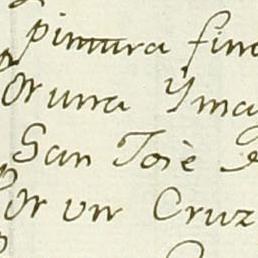 pintura fina
Por una Yma
San Jose d
Por un Cruz